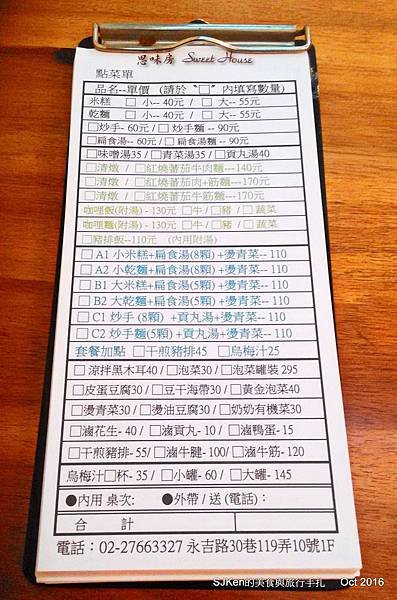 思味房 Sweet House
點菜單
品名--單價 (請於〝□〞內填寫數量)
米糕 □ 小-- 40元 / □ 大-- 55元
乾麵 □ 小-- 40元 / □ 大-- 55元
□炒手- 60元 / □ 炒手麵 -- 90元
□扁食湯-- 60元 / □扁食麵-- 90元
□味噌湯35 / □青菜湯35 / □貢丸湯40
□清燉 / □紅燒蕃茄牛肉麵---140元
□清燉 / □紅燒蕃茄肉+筋麵---170元
□清燉 / □紅燒蕃茄牛筋麵---170元
咖哩飯(附湯) - 130元 □牛 / □豬 / □ 蔬菜
咖哩麵(附湯) - 130元 □牛 / □豬 / □ 蔬菜
□豬排飯--110元 (內用附湯)
□ A1 小米糕+扁食湯(8顆) +燙青菜-- 110
□ A2 小乾麵+扁食湯(8顆) +燙青菜-- 110
□ B1 大米糕+扁食湯(5顆) +燙青菜-- 110
□ B2 大乾麵+扁食湯(5顆) +燙青菜-- 110
□ C1 炒手 (8顆) +貢丸湯+燙青菜-- 110
□ C2 炒手麵(5顆) +貢丸湯+燙青菜-- 110
套餐加點 □干煎豬排45 □烏梅汁25
□ 涼拌黑木耳40 / □泡菜30 / □泡菜罐裝 295
□皮蛋豆腐30 / □豆干海帶30 / □黃金泡菜40
□燙青菜30 / □燙油豆腐30 / □奶奶有機菜30
□滷花生- 40 / □滷貢丸- 10 / □滷鴨蛋- 15
□干煎豬排- 55/ □滷牛腱- 100/ □滷牛筋- 120
烏梅汁□杯- 35 / □小罐- 60 / □大罐- 145
●內用 桌次: ●外帶 / 送 (電話):
合 計
電話:02-27663327 永吉路30巷119弄10號1F
SJKen的美食與旅行手扎 Oct 2016